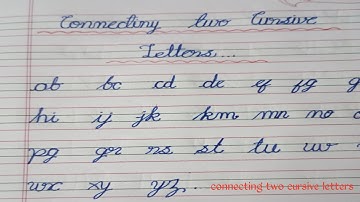 Connecting two Cursive
Letters...
ab bc cd de ef fg g
hi ij jk km mn no
pq qr rs st tu uv
wx xy yz.
connecting two cursive letters